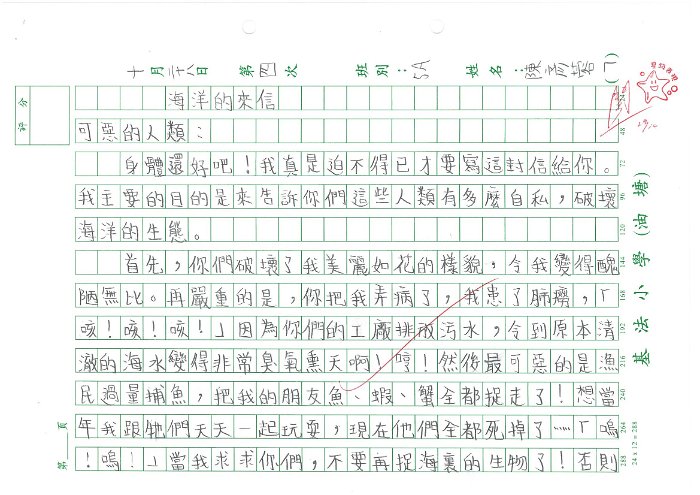 十月二十八日 第四次 班別：5A 姓名：陳 (7)
評分
海洋的來信
可惡的人類：
身體還好吧！我真是迫不得已才要寫這封信給你。
我主要的目的是來告訴你們這些人類有多麼自私，破壞
海洋的生態。
首先，你們破壞了我美麗如花的樣貌，令我變得醜
陋無比。再嚴重的是，你把我弄病了，我患了肺癆，「
咳！咳！咳！」因為你們的工廠排放污水，令到原本清
澈的海水變得非常臭氣熏天啊！哼！然後最可惡的是漁
民過量捕魚，把我的朋友魚、蝦、蟹全都捉走了！想當
年我跟牠們天天一起玩耍，現在他們全都死掉了……「嗚
！嗚！」當我求求你們，不要再捉海裏的生物了！否則
24
48
72
96
120
144
168
192
216
240
264
288
24 x 12 = 288
基法小學（油塘）
第 頁